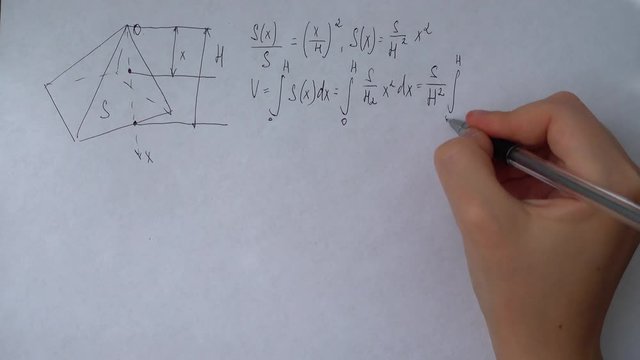 O
x
H
S
x
S(x)/S = (x/H)², S(x) = S/H² x²
V = ∫₀ᴴ S(x)dx = ∫₀ᴴ S/H₂ x² dx = S/H² ∫ᴴ